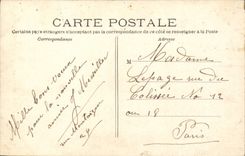 CARTE POSTALE
Certains pays étrangers n'acceptent pas la correspondance de ce côté se renseigner à la Poste
Correspondance
Adresse
Mille bons voeux
pour la nouvelle
année
M adame
Lepage rue du
Colisée No 12
ou 18
Paris